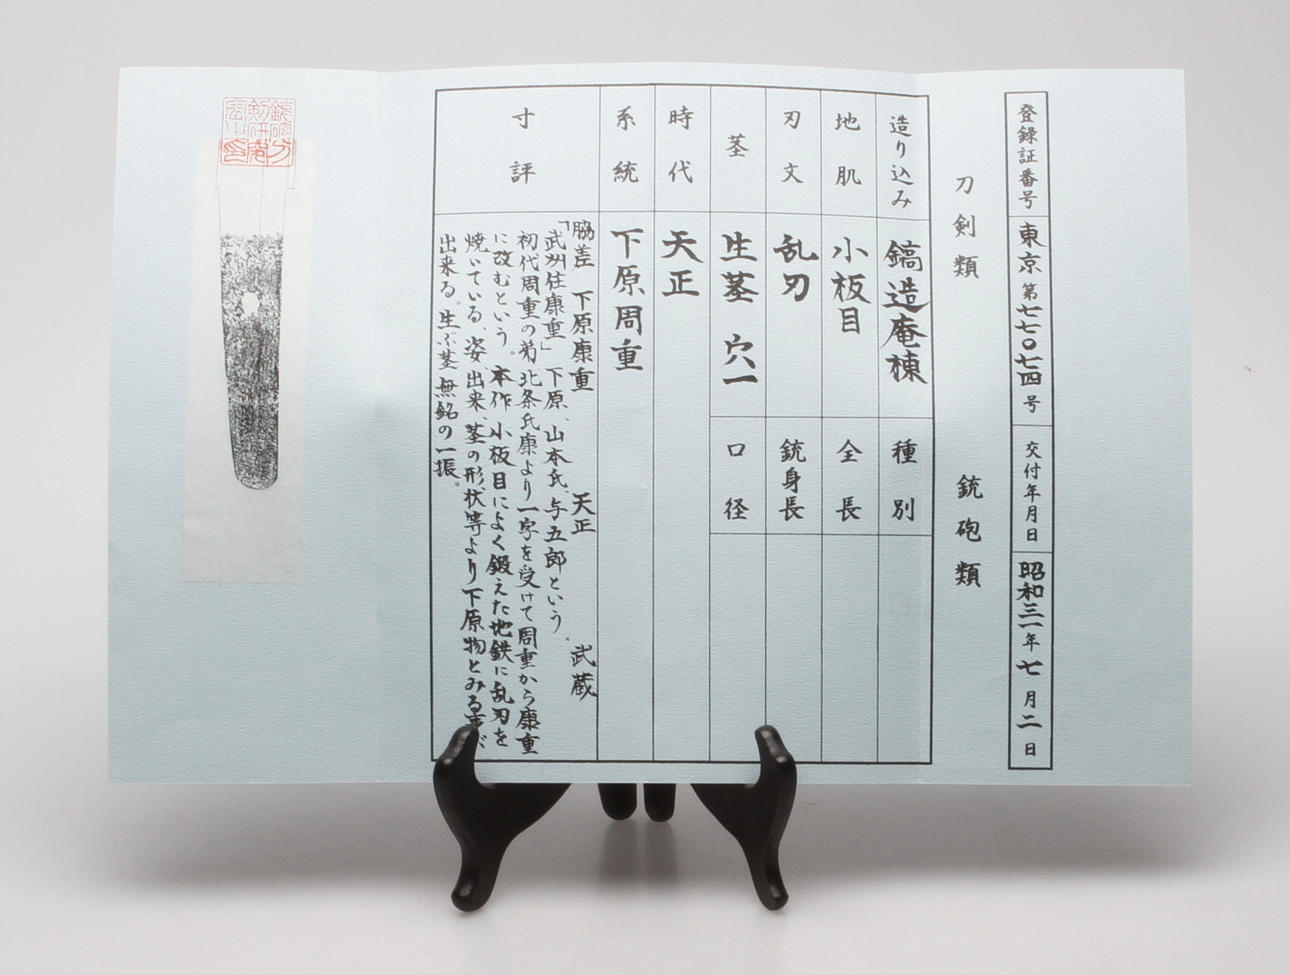 登録証番号 東京 第七七〇七四号 交付年月日 昭和三一年七月二日
刀剣類 銃砲類
造り込み 鎬造庵棟 種別
地肌 小板目 全長
刃文 乱刃 銃身長
茎 生茎 穴一 口径
時代 天正
系統 下原周重
寸評
脇差 下原康重 天正 武蔵
「武州住康重」下原、山本氏、与五郎という、
初代周重の弟 北条氏康より一字を受けて周重から康重
に改むという。本作 小板目によく鍛えた地鉄に乱刃を
焼いている、姿、出来、茎の形状等より下原物とみる事が
出来る。生ぶ茎無銘の一振。